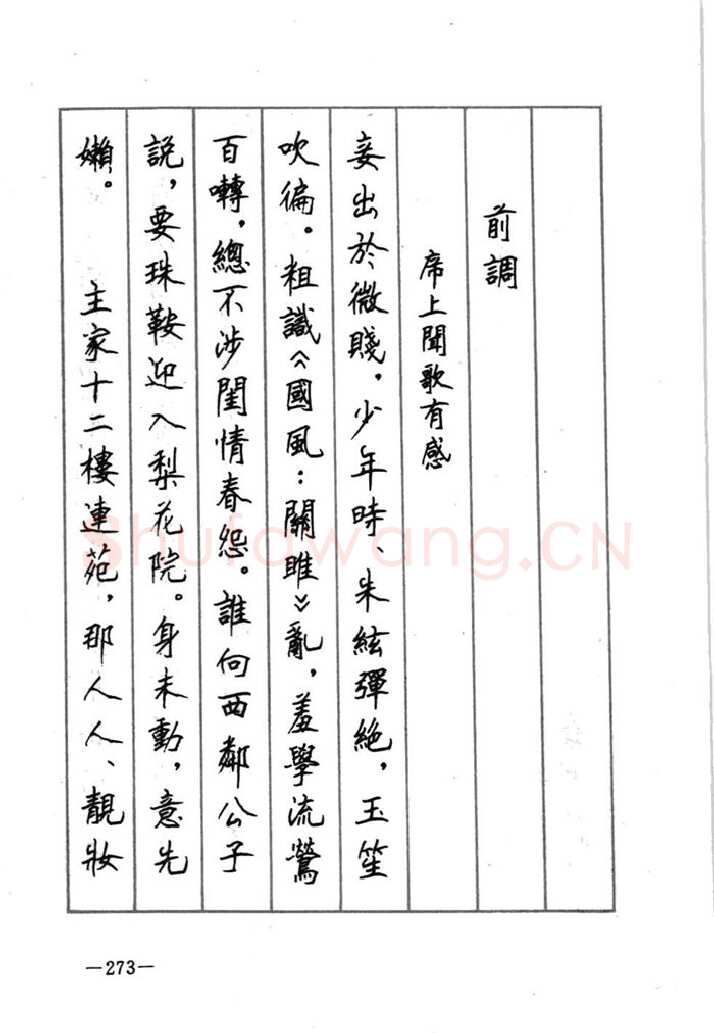 前調
席上聞歌有感
妾出於微賤，少年時、朱絃彈絶，玉笙
吹徧。粗識《國風：關雎》亂，羞學流鶯
百囀，總不涉閨情春怨。誰向西鄰公子
説，要珠鞍迎入梨花院。身未動，意先
嬾。　主家十二樓連苑，那人人、靚妝
—273—
Shufawang.CN